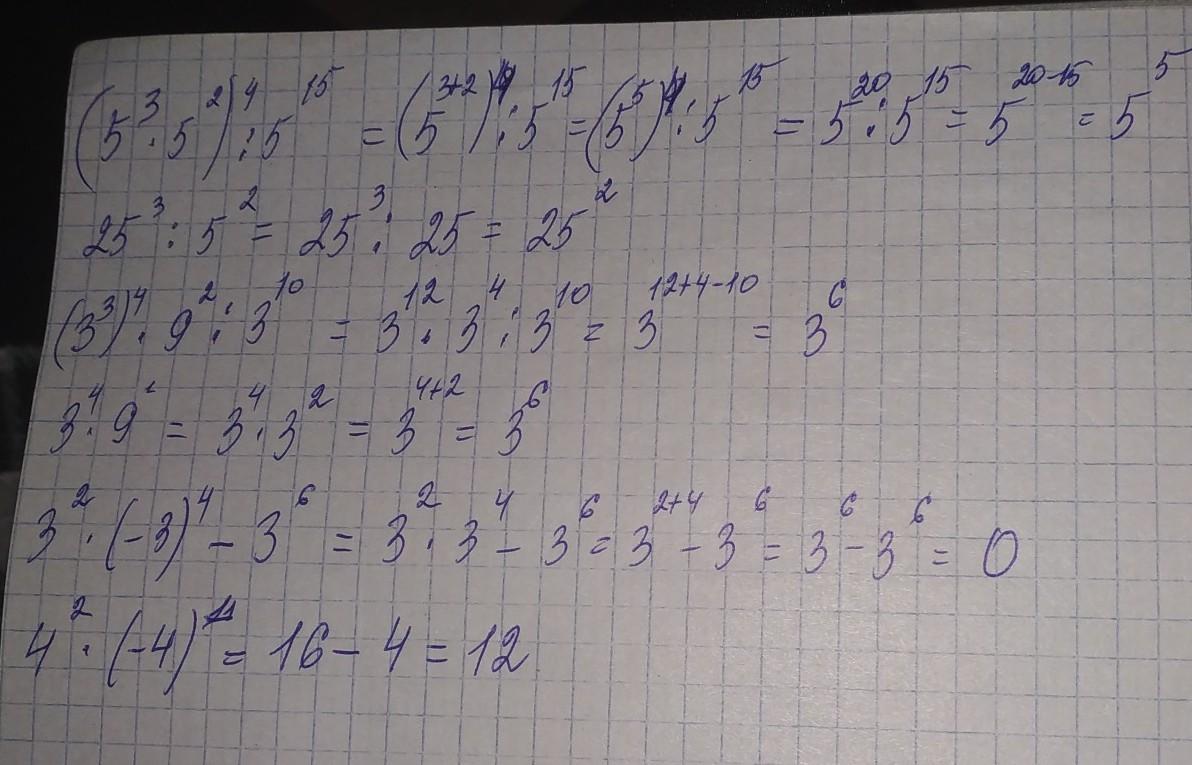 (5³·5²)⁴:5¹⁵ = (5³⁺²)⁴:5¹⁵ = (5⁵)⁴:5¹⁵ = 5²⁰:5¹⁵ = 5²⁰⁻¹⁵ = 5⁵
25³:5² = 25³:25 = 25²
(3³)⁴·9²:3¹⁰ = 3¹²·3⁴:3¹⁰ = 3¹²⁺⁴⁻¹⁰ = 3⁶
3⁴·9¹ = 3⁴·3² = 3⁴⁺² = 3⁶
3²·(-3)⁴ - 3⁶ = 3²·3⁴ - 3⁶ = 3²⁺⁴ - 3⁶ = 3⁶ - 3⁶ = 0
4²·(-4) = 16 - 4 = 12